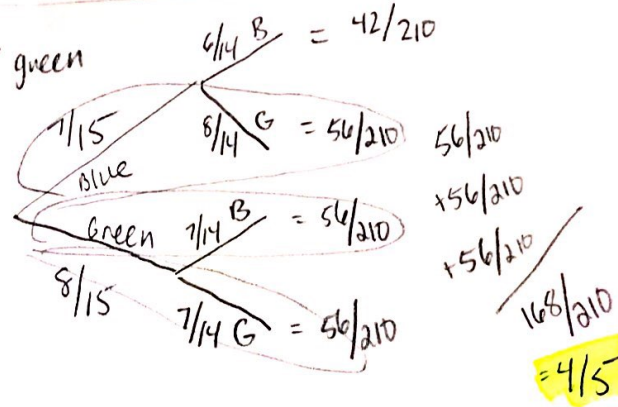 green
6/14 B = 42/210
7/15
Blue
8/14 G = 56/210
Green
8/15
7/14 B = 56/210
7/14 G = 56/210
56/210
+56/210
+56/210
168/210
=4/5